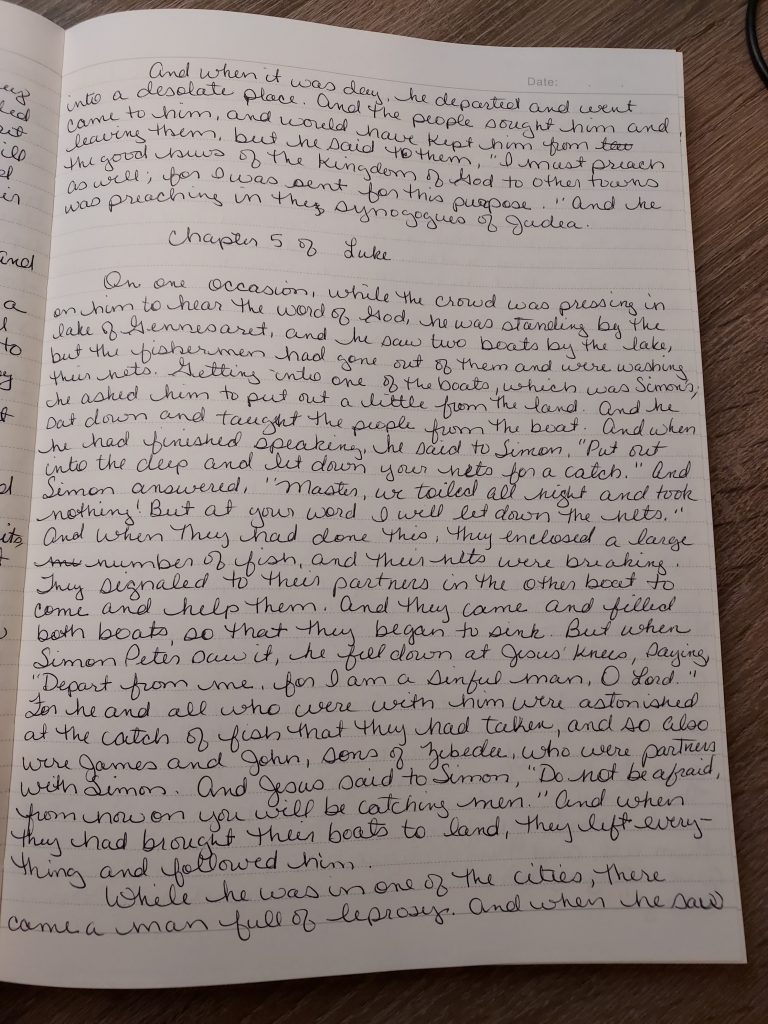 Date:
And when it was day, he departed and went
into a desolate place. And the people sought him and
came to him, and would have kept him from
leaving them, but he said to them, "I must preach
the good news of the Kingdom of God to other towns
as well; for I was sent for this purpose." And he
was preaching in the synagogues of Judea.
Chapter 5 of Luke
On one occasion, while the crowd was pressing in
on him to hear the word of God, he was standing by the
lake of Gennesaret, and he saw two boats by the lake,
but the fishermen had gone out of them and were washing
their nets. Getting into one of the boats, which was Simons,
he asked him to put out a little from the land. And he
sat down and taught the people from the boat. And when
he had finished speaking, he said to Simon, "Put out
into the deep and let down your nets for a catch." And
Simon answered, "Master, we toiled all night and took
nothing! But at your word I will let down the nets."
And when they had done this, they enclosed a large
number of fish, and their nets were breaking.
They signaled to their partners in the other boat to
come and help them. And they came and filled
both boats, so that they began to sink. But when
Simon Peter saw it, he fell down at Jesus' knees, saying,
"Depart from me, for I am a sinful man, O Lord."
For he and all who were with him were astonished
at the catch of fish that they had taken, and so also
were James and John, sons of Zebedee, who were partners
with Simon. And Jesus said to Simon, "Do not be afraid,
from now on you will be catching men." And when
they had brought their boats to land, they left every-
thing and followed him.
While he was in one of the cities, there
came a man full of leprosy. And when he saw